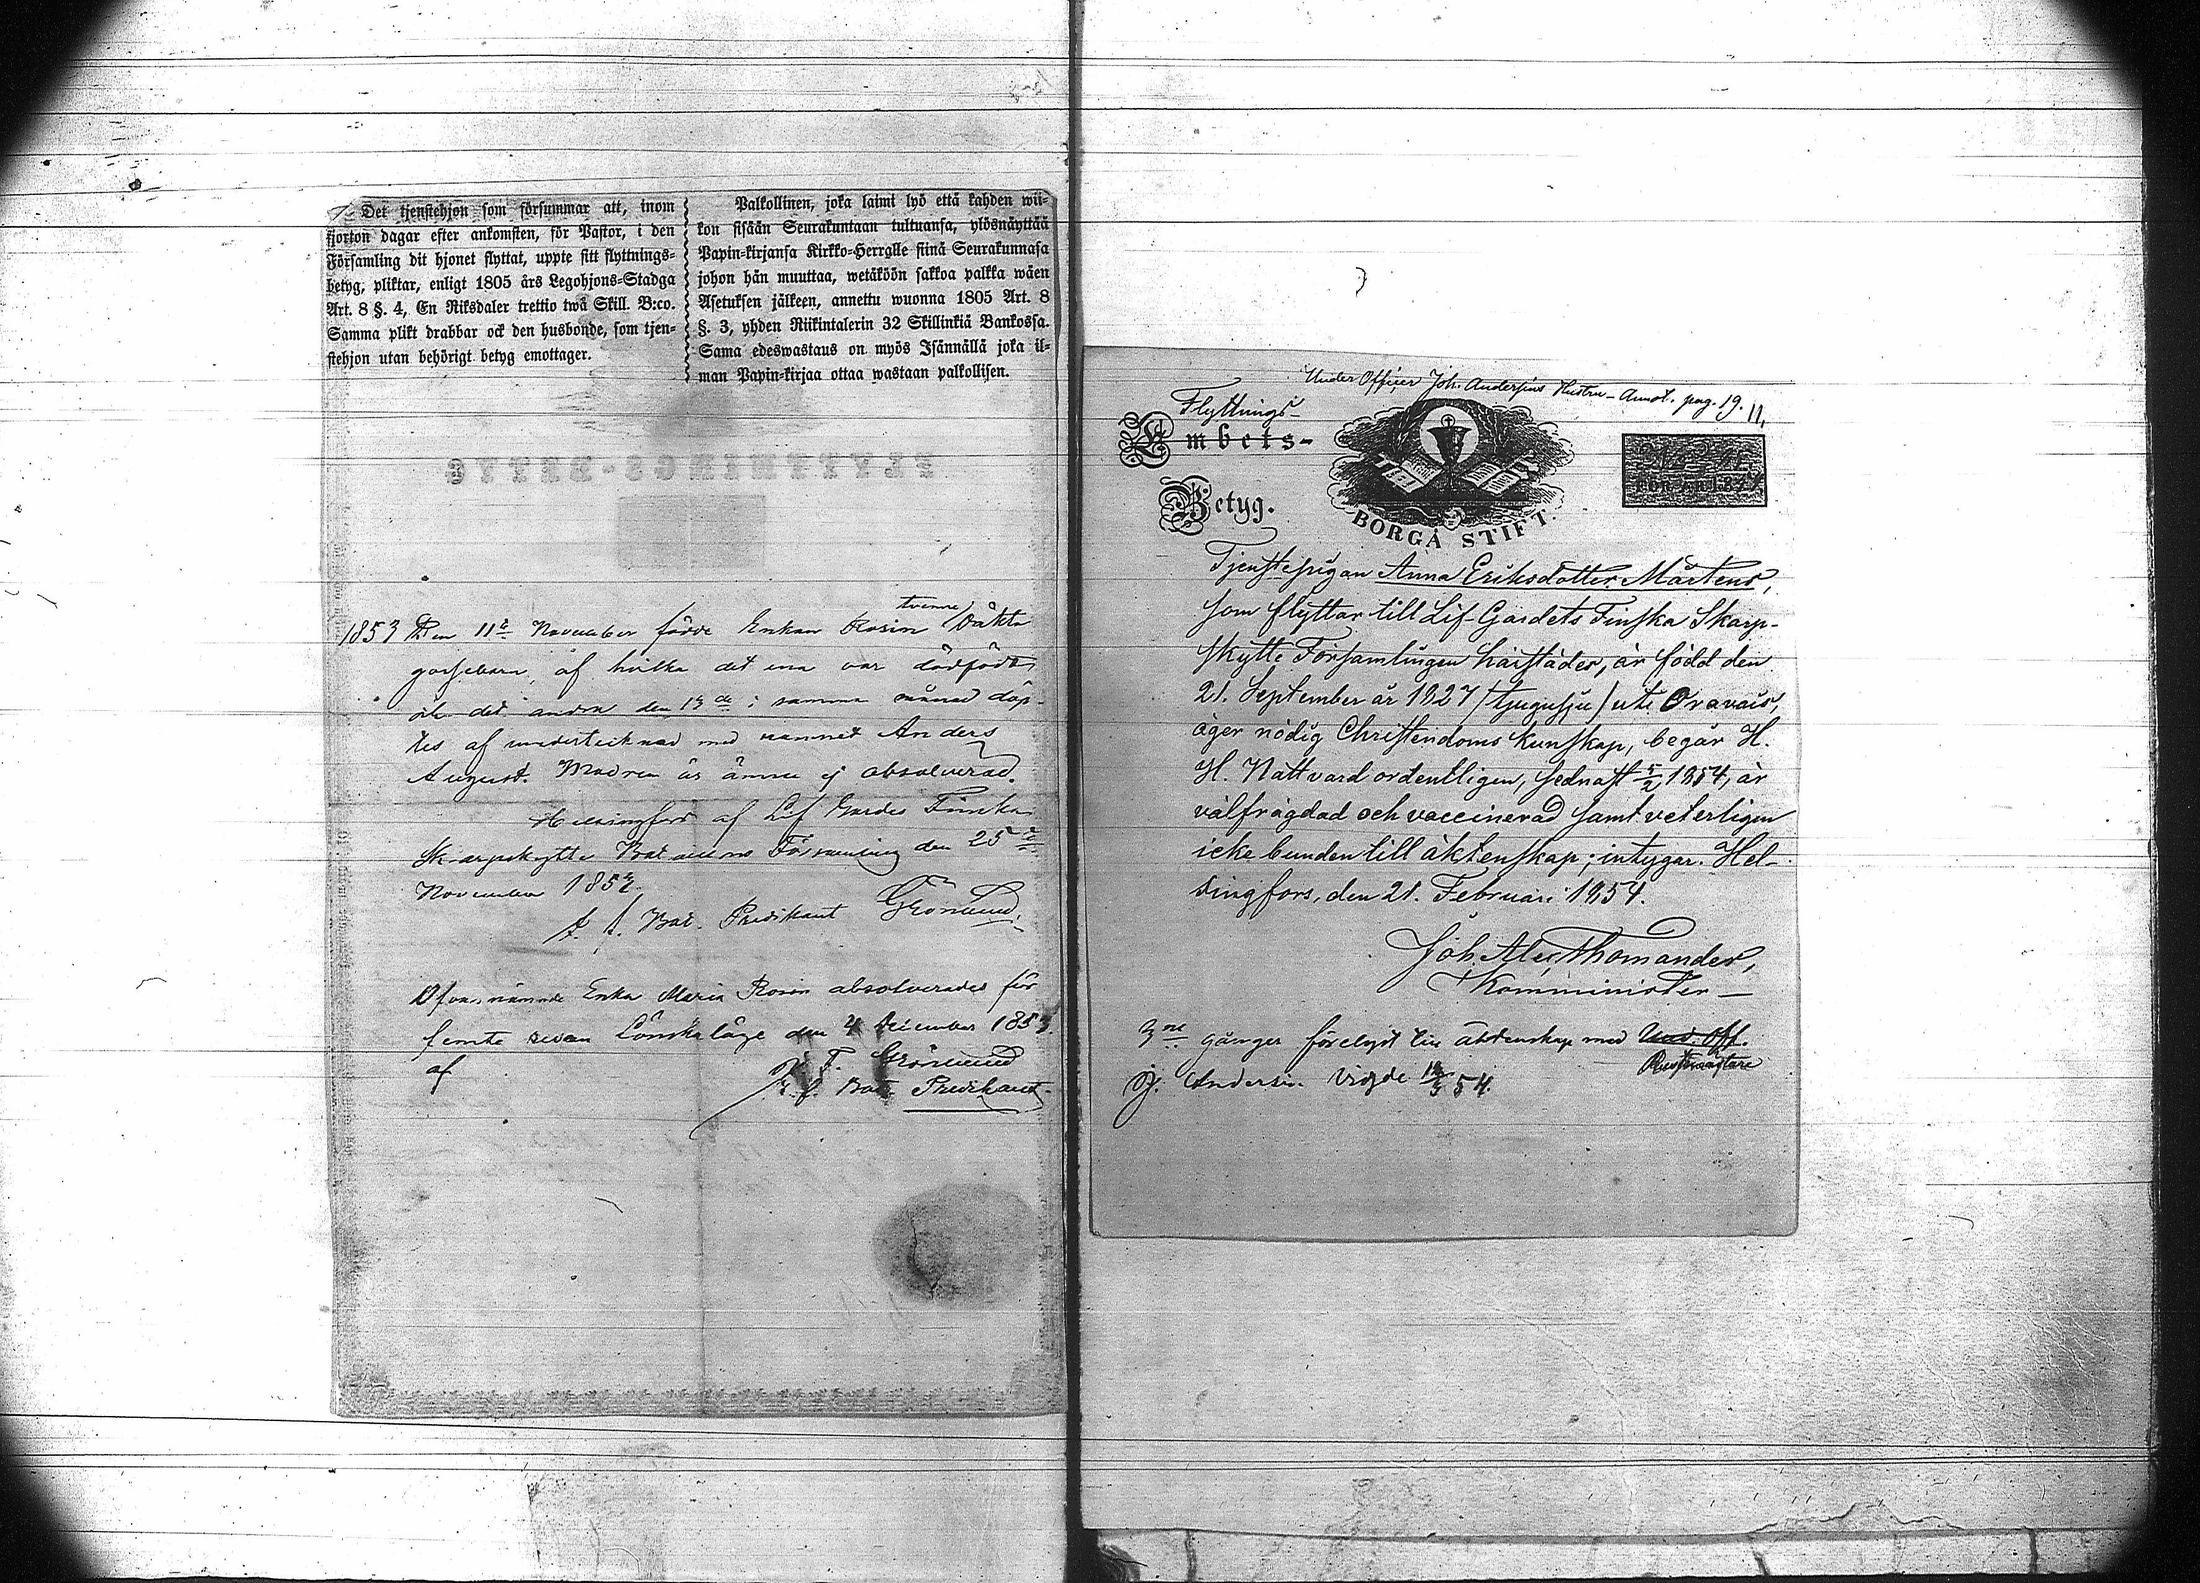 Det tjenstehjon som försummar att, inom
fjorton dagar efter ankomsten, för Pastor, i den
Församling dit hjonet flyttat, uppte sitt flyttnings-
betyg, pliktar, enligt 1805 års Legohjons-Stadga
Art. 8 §. 4, En Riksdaler trettio twå Skill. B:co.
Samma plikt drabbar ock den husbonde, som tjen-
stehjon utan behörigt betyg emottager.
Palkollinen, joka laimi lyö että kahden wii-
kon sisään Seurakuntaan tultuansa, ylösnäyttää
Papin-kirjansa Kirkko-Herralle siinä Seurakunnasa
johon hän muuttaa, wetäköön sakkoa palkka wäen
Asetuksen jälkeen, annettu wuonna 1805 Art. 8
§. 3, yhden Riikintalerin 32 Skillinkiä Bankossa.
Sama edeswastaus on myös Isännällä joka il-
man Papin-kirjaa ottaa wastaan palkollisen.
1853 Den 11te November födde Enkan Rosin tvenne oäkta
gossebarn, af hvilka det ena var dödfödt,
och det andra den 13de i samma månad döp-
tes af undertecknad med namnet Anders
August. Modren är ännu ej absolverad.
Helsingfors af Lif Gardes Finska
Skarpskytte Bataillons Församling den 25te
November 1853.
t. f. Bat. Predikant Grönlund.
Ofvannämnde Enka Maria Rosin absolverades för
femte resan Lönskaläge den 4 December 1853.
af
F. Grönlund
t. f. Bat. Predikant
Under Officer Joh. Andersins Hustru - Annot. pag. 19. 11,
Flyttnings-
Embets-
Betyg.
BORGÅ STIFT.
Tjenstepigan Anna Eriksdotter Mårtens,
som flyttar till Lif-Gardets Finska Skarp-
skytte Församlingen härstädes, är född den
21. September år 1827 (tjugusju) uti Oravais,
äger nödig Christendoms kunskap, begår H.
H. Nattvard ordentligen, sednast 5/2 1854, är
välfrägdad och vaccinerad samt veterligen
icke bunden till äktenskap; intygar. Hel-
singfors, den 21. Februari 1854.
Joh. Alex. Thomander,
Komminister
3ne gånger förelyst till äktenskap med Und. Off.
Rustmästare
J. Andersin Vigde 19/3 54.